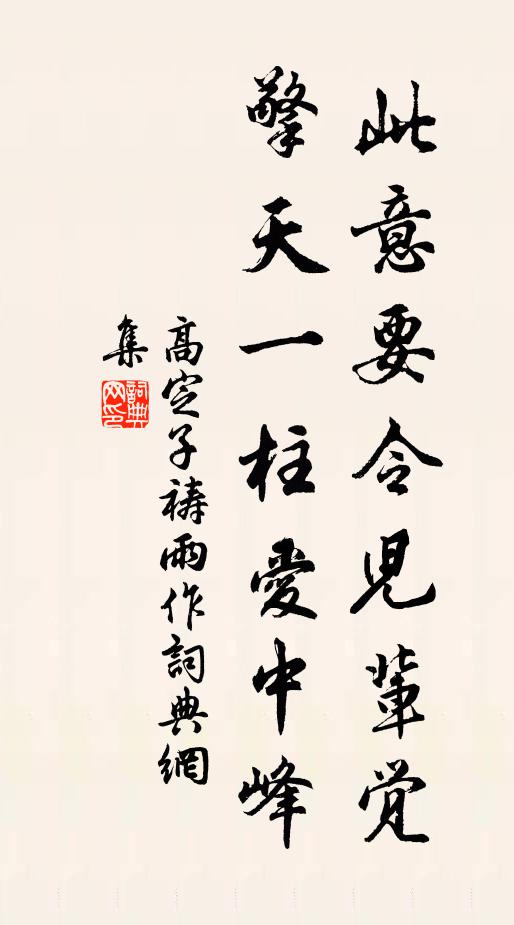 此意要令児輩覚
擎天一柱愛中峰
高定子祷雨作詞典網
集
詞典网印